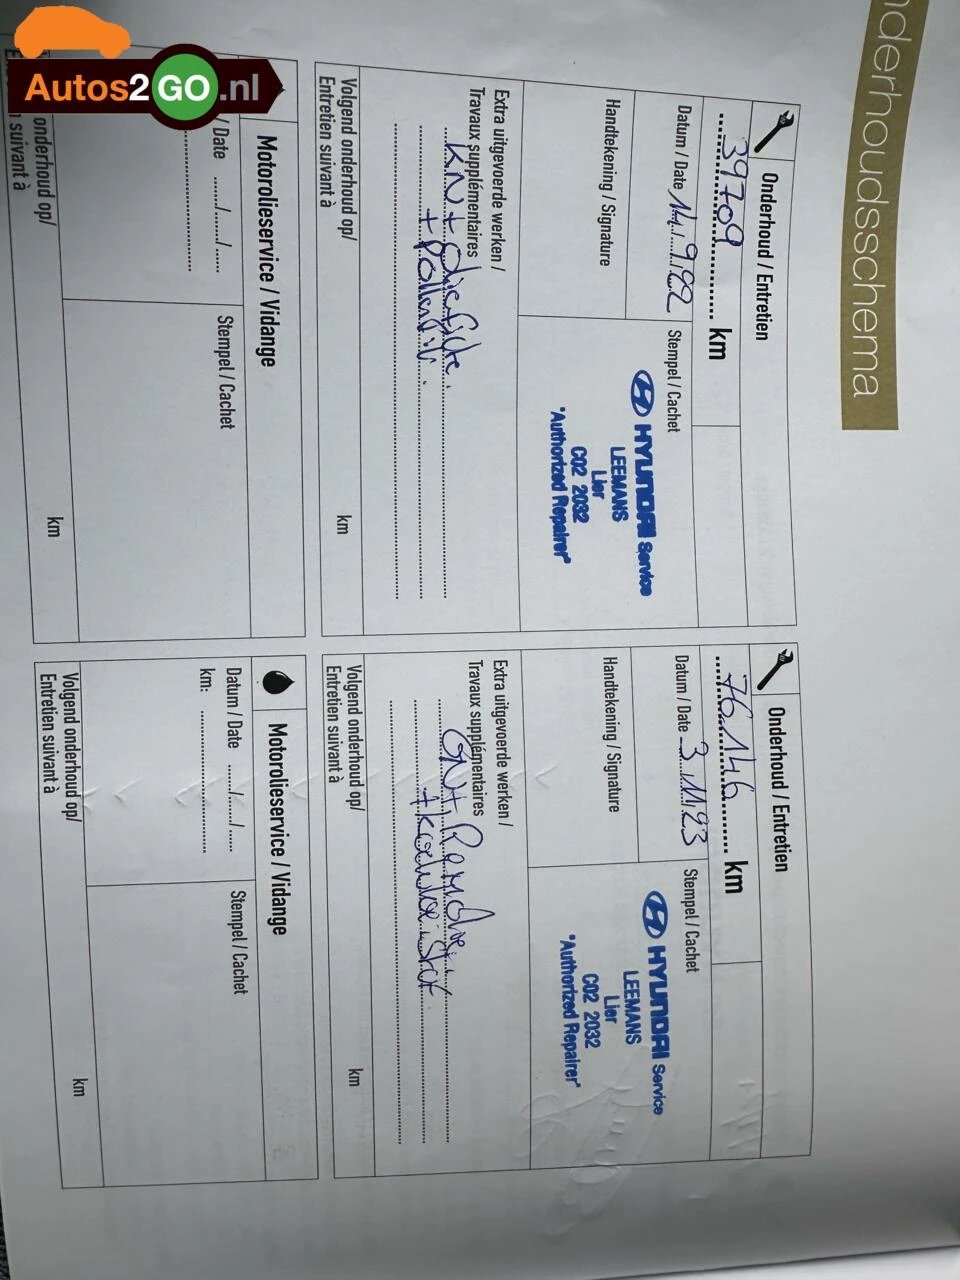 Autos2GO.nl
nderhoudsschema
Onderhoud / Entretien
39709 km
Datum / Date 14/9/22
Stempel / Cachet
Handtekening / Signature
HYUNDAI Service
LEEMANS
Lier
C02 2032
"Authorized Repairer"
Extra uitgevoerde werken /
Travaux supplémentaires
KN +
+ Pollenfilt.
Volgend onderhoud op/
Entretien suivant à
km
Onderhoud / Entretien
76.146 km
Datum / Date 3/11/23
Stempel / Cachet
Handtekening / Signature
HYUNDAI Service
LEEMANS
Lier
C02 2032
"Authorized Repairer"
Extra uitgevoerde werken /
Travaux supplémentaires
GN +
Volgend onderhoud op/
Entretien suivant à
km
Motorolieservice / Vidange
/ Date ....../....../......
Stempel / Cachet
onderhoud op/
suivant à
km
Motorolieservice / Vidange
Datum / Date ....../....../......
km:
Stempel / Cachet
Volgend onderhoud op/
Entretien suivant à
km